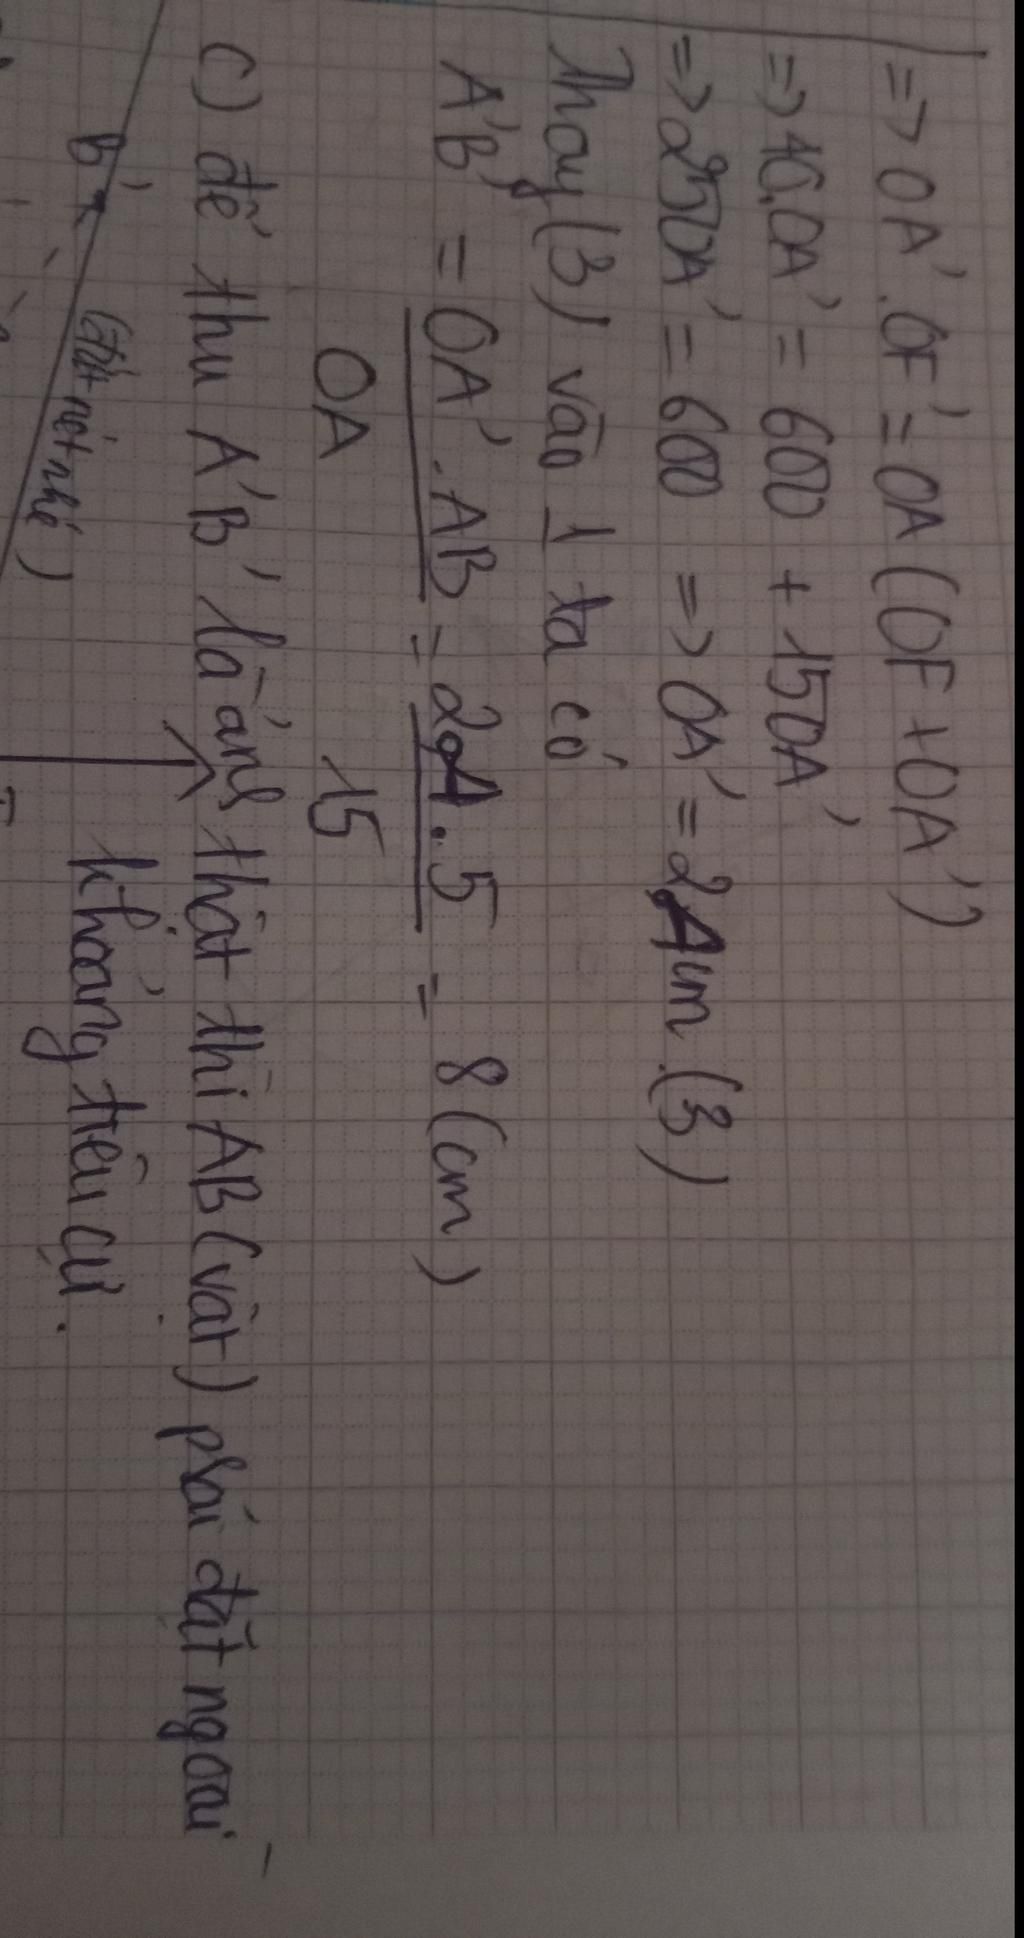 => OA'.OF' = OA (OF + OA')
=> 40.OA' = 600 + 15OA'
=> 25OA' = 600 => OA' = 24cm (3)
Thay (3) vào 1 ta có
A'B' = OA'.AB = 24.5 = 8 (cm)
OA 15
c) để thu A'B' là ảnh thật thì AB (vật) phải đặt ngoài
khoảng tiêu cự.
B'